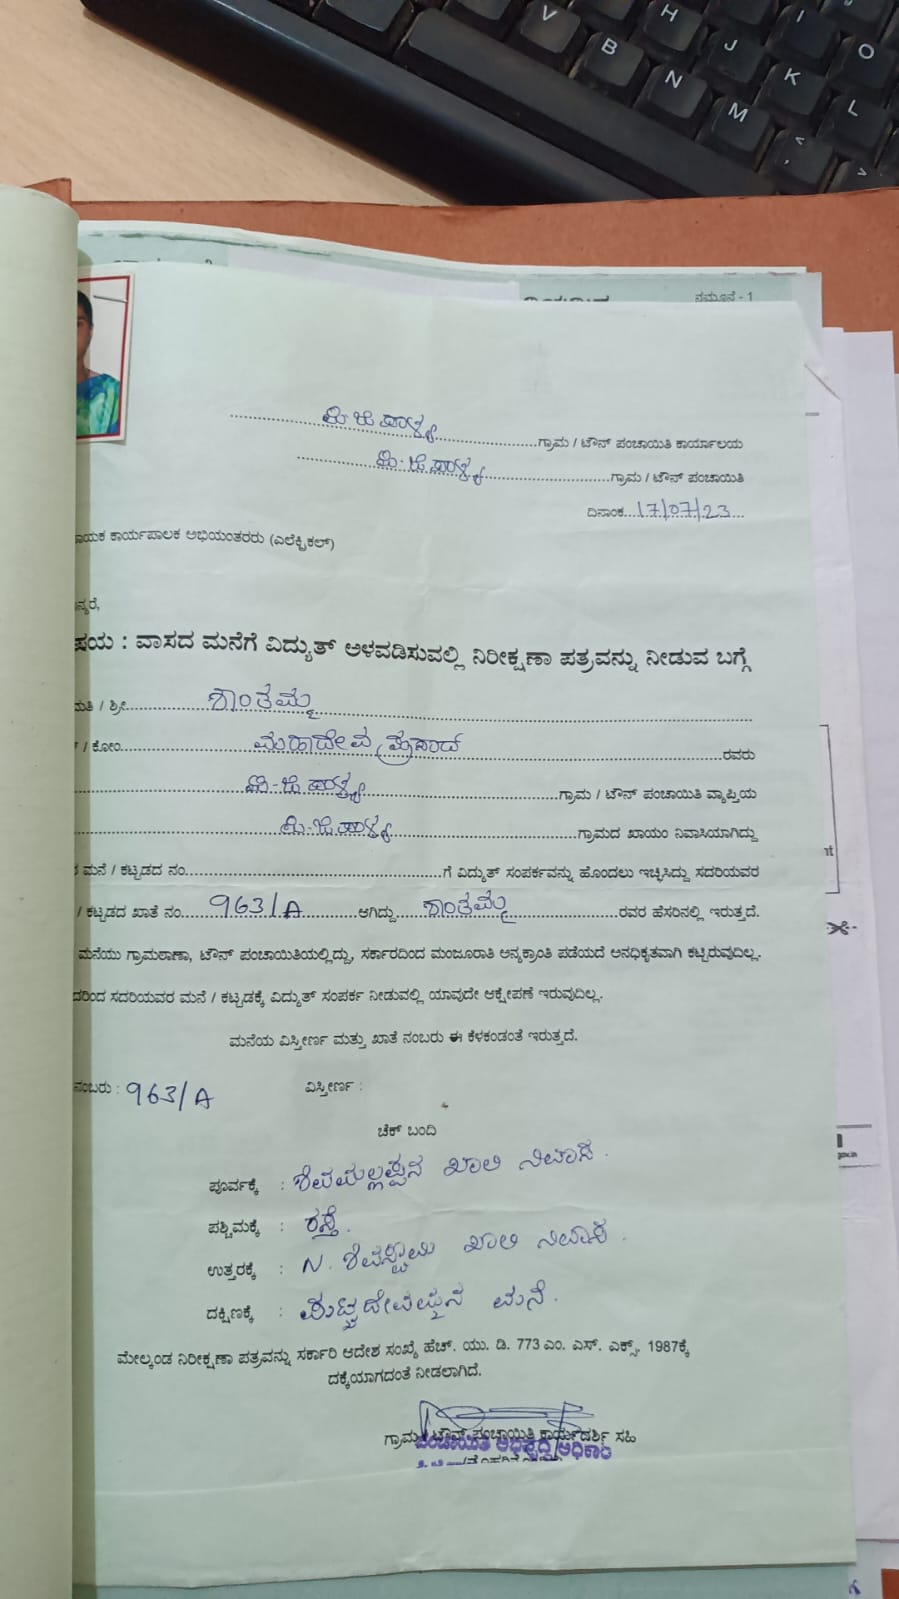 ನಮೂನೆ - 1
ಪಿ.ಜಿ.ಪಾಳ್ಯ ಗ್ರಾಮ / ಟೌನ್ ಪಂಚಾಯಿತಿ ಕಾರ್ಯಾಲಯ
ಪಿ.ಜಿ.ಪಾಳ್ಯ ಗ್ರಾಮ / ಟೌನ್ ಪಂಚಾಯಿತಿ
ದಿನಾಂಕ 17/07/23
ಾಯಕ ಕಾರ್ಯಪಾಲಕ ಅಭಿಯಂತರರು (ಎಲೆಕ್ಟ್ರಿಕಲ್)
ನ್ಯರೆ,
ಷಯ : ವಾಸದ ಮನೆಗೆ ವಿದ್ಯುತ್ ಅಳವಡಿಸುವಲ್ಲಿ ನಿರೀಕ್ಷಣಾ ಪತ್ರವನ್ನು ನೀಡುವ ಬಗ್ಗೆ
ಮತಿ / ಶ್ರೀ ಶಾಂತಮ್ಮ
/ ಕೋಂ ಮಹಾದೇವ ಪ್ರಸಾದ್ ರವರು
ಪಿ.ಜಿ.ಪಾಳ್ಯ ಗ್ರಾಮ / ಟೌನ್ ಪಂಚಾಯಿತಿ ವ್ಯಾಪ್ತಿಯ
ಪಿ.ಜಿ.ಪಾಳ್ಯ ಗ್ರಾಮದ ಖಾಯಂ ನಿವಾಸಿಯಾಗಿದ್ದು
ಮನೆ / ಕಟ್ಟಡದ ನಂ. ಗೆ ವಿದ್ಯುತ್ ಸಂಪರ್ಕವನ್ನು ಹೊಂದಲು ಇಚ್ಛಿಸಿದ್ದು ಸದರಿಯವರ
/ ಕಟ್ಟಡದ ಖಾತೆ ನಂ. 963/A ಆಗಿದ್ದು ಶಾಂತಮ್ಮ ರವರ ಹೆಸರಿನಲ್ಲಿ ಇರುತ್ತದೆ.
ಮನೆಯು ಗ್ರಾಮಠಾಣಾ, ಟೌನ್ ಪಂಚಾಯಿತಿಯಲ್ಲಿದ್ದು, ಸರ್ಕಾರದಿಂದ ಮಂಜೂರಾತಿ ಅನ್ಯಕ್ರಾಂತಿ ಪಡೆಯದೆ ಅನಧಿಕೃತವಾಗಿ ಕಟ್ಟಿರುವುದಿಲ್ಲ.
ದರಿಂದ ಸದರಿಯವರ ಮನೆ / ಕಟ್ಟಡಕ್ಕೆ ವಿದ್ಯುತ್ ಸಂಪರ್ಕ ನೀಡುವಲ್ಲಿ ಯಾವುದೇ ಆಕ್ಷೇಪಣೆ ಇರುವುದಿಲ್ಲ.
ಮನೆಯ ವಿಸ್ತೀರ್ಣ ಮತ್ತು ಖಾತೆ ನಂಬರು ಈ ಕೆಳಕಂಡಂತೆ ಇರುತ್ತದೆ.
ನಂಬರು : 963/A ವಿಸ್ತೀರ್ಣ :
ಚೆಕ್ ಬಂದಿ
ಪೂರ್ವಕ್ಕೆ : ಶಿವಮಲ್ಲಪ್ಪನ ಖಾಲಿ ನಿವಾಸ.
ಪಶ್ಚಿಮಕ್ಕೆ : ರಸ್ತೆ.
ಉತ್ತರಕ್ಕೆ : N. ಶಿವಸ್ವಾಮಿ ಖಾಲಿ ನಿವಾಸ.
ದಕ್ಷಿಣಕ್ಕೆ : ಪುಟ್ಟದೇವಮ್ಮನ ಮನೆ.
ಮೇಲ್ಕಂಡ ನಿರೀಕ್ಷಣಾ ಪತ್ರವನ್ನು ಸರ್ಕಾರಿ ಆದೇಶ ಸಂಖ್ಯೆ ಹೆಚ್. ಯು. ಡಿ. 773 ಎಂ. ಎಸ್. ಎಕ್ಸ್. 1987ಕ್ಕೆ
ದಕ್ಕೆಯಾಗದಂತೆ ನೀಡಲಾಗಿದೆ.
ಗ್ರಾಮ / ಟೌನ್ ಪಂಚಾಯಿತಿ ಕಾರ್ಯದರ್ಶಿ ಸಹಿ
ಪಂಚಾಯಿತಿ ಅಭಿವೃದ್ಧಿ ಅಧಿಕಾರಿ